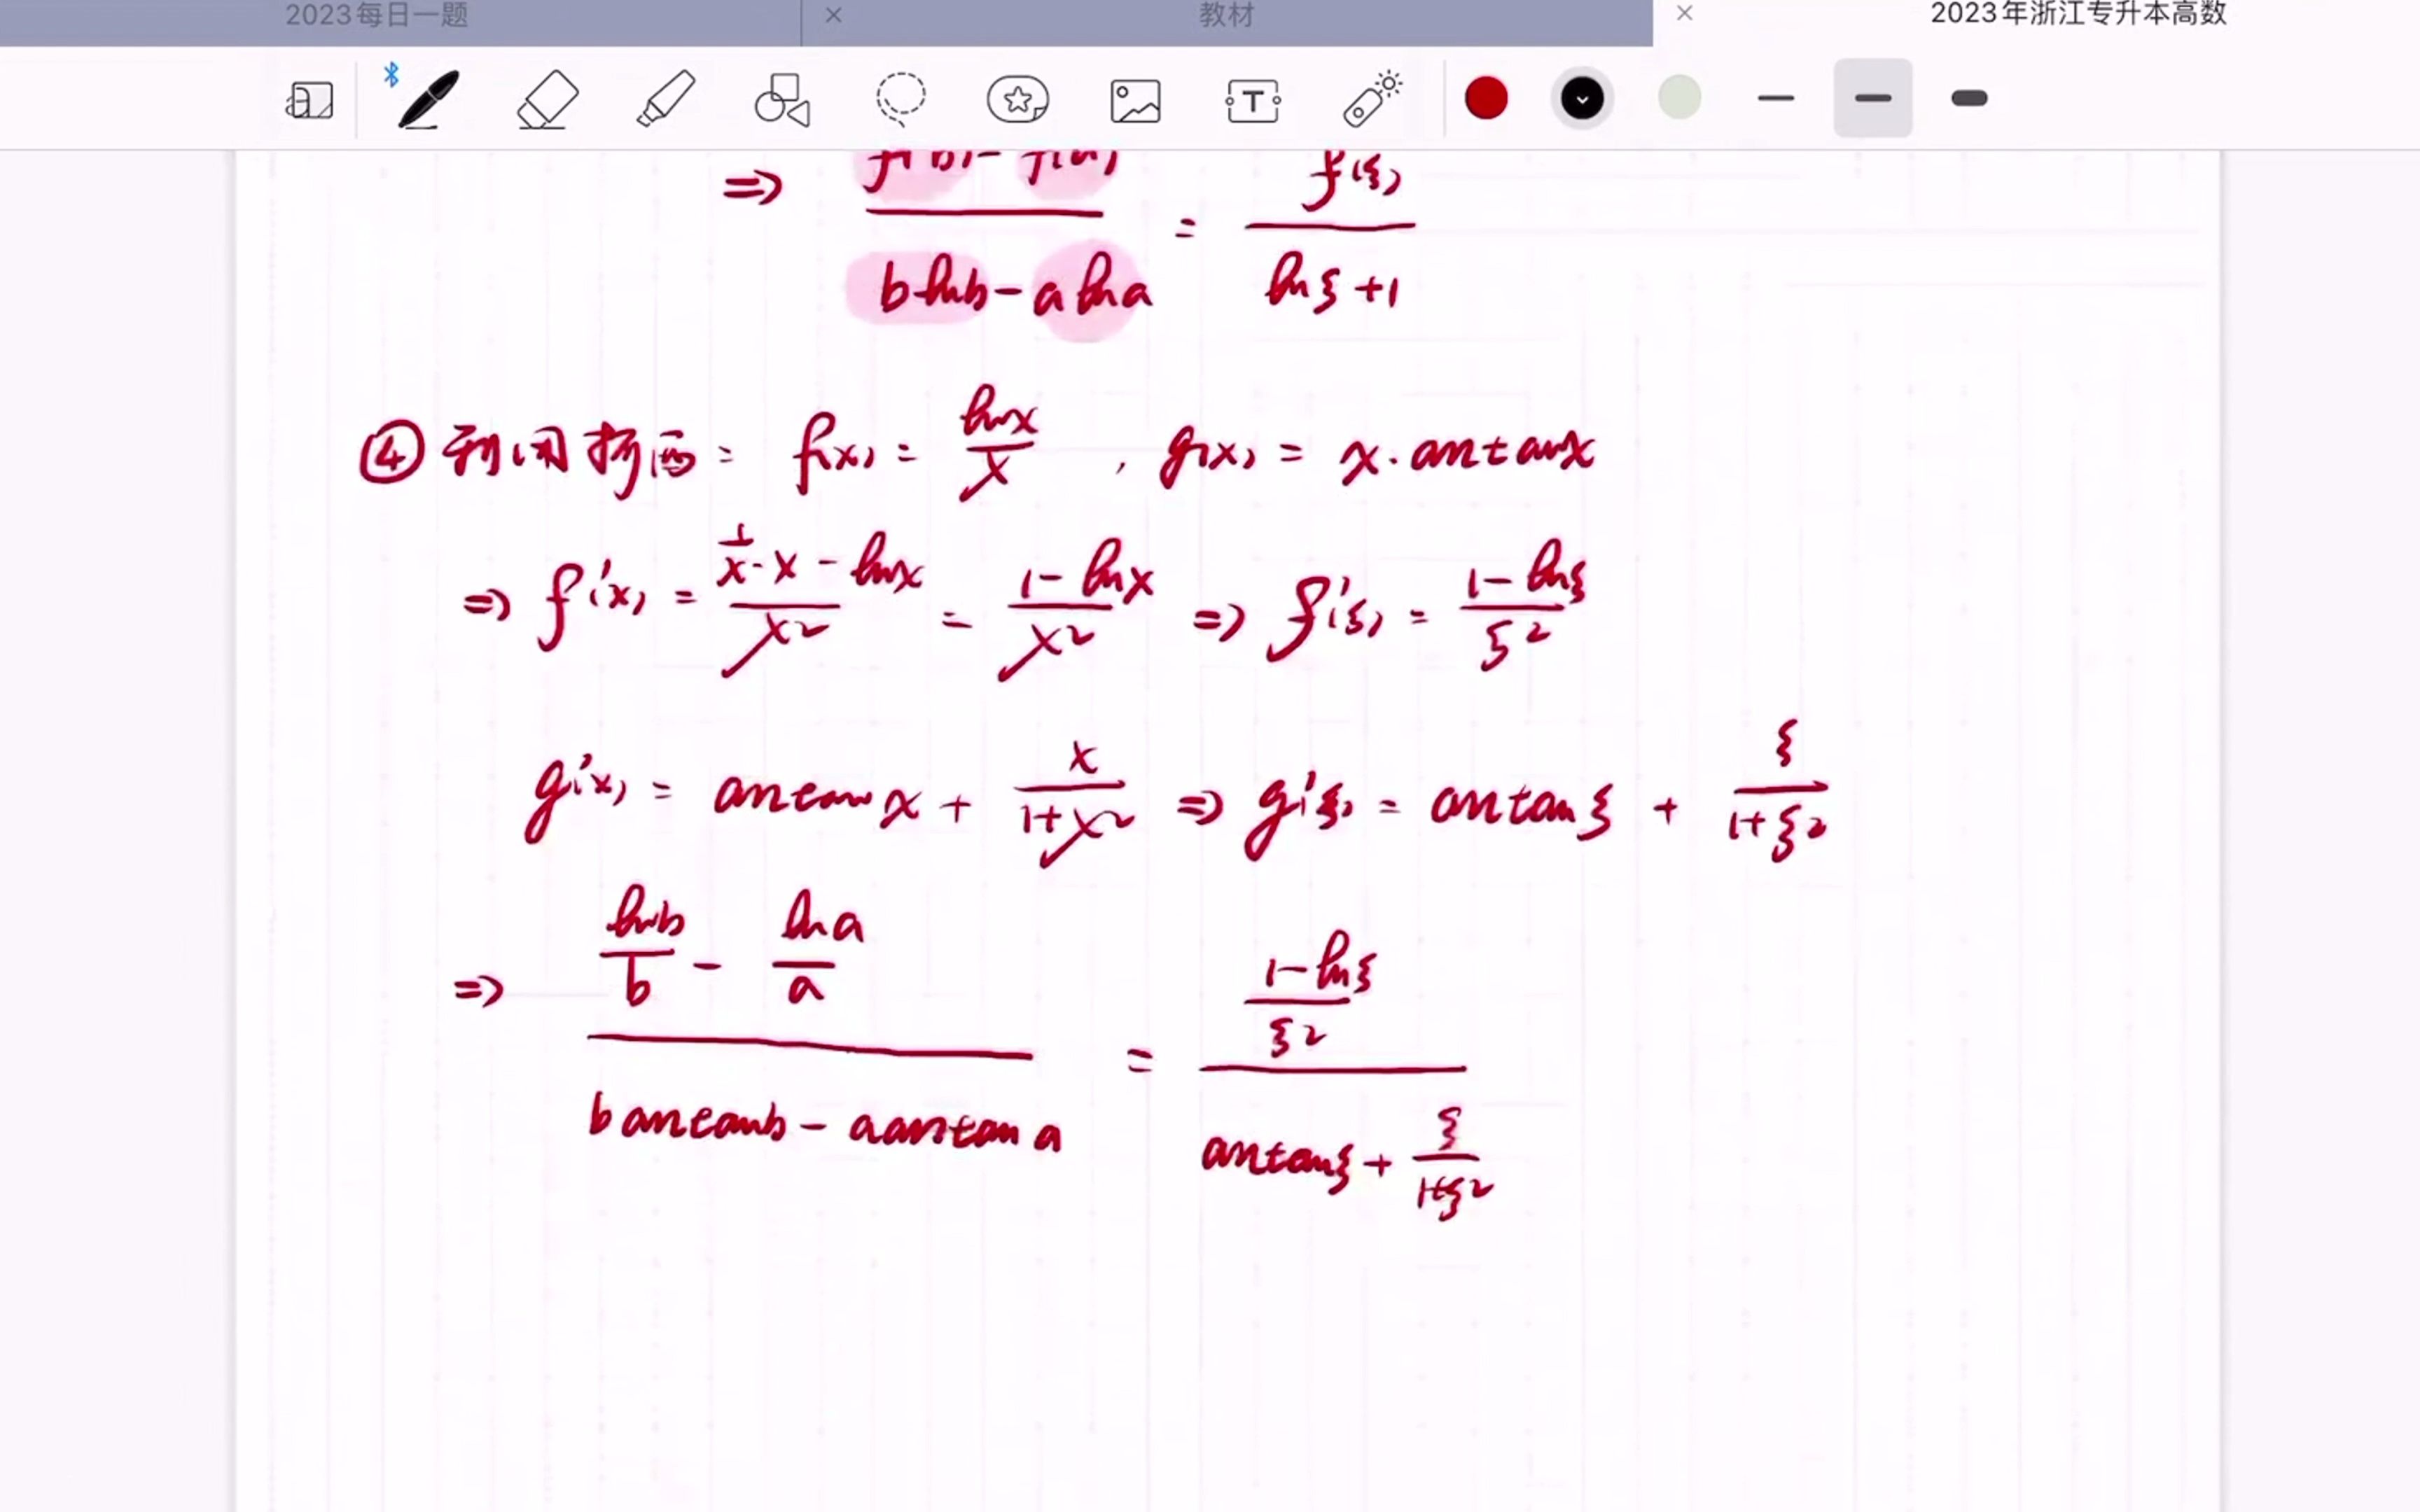 2023每日一题 教材 2023年浙江专升本高数
⇒ f(b)-f(a) / b ln b - a ln a = f'(ξ) / ln ξ + 1
④ 利用柯西: f(x) = ln x / x , g(x) = x·arctan x
⇒ f'(x) = (1/x·x - ln x) / x² = (1 - ln x) / x² ⇒ f'(ξ) = (1 - ln ξ) / ξ²
g'(x) = arctan x + x / (1+x²) ⇒ g'(ξ) = arctan ξ + ξ / (1+ξ²)
⇒ (ln b / b - ln a / a) / (b arctan b - a arctan a) = ((1 - ln ξ) / ξ²) / (arctan ξ + ξ / (1+ξ²))